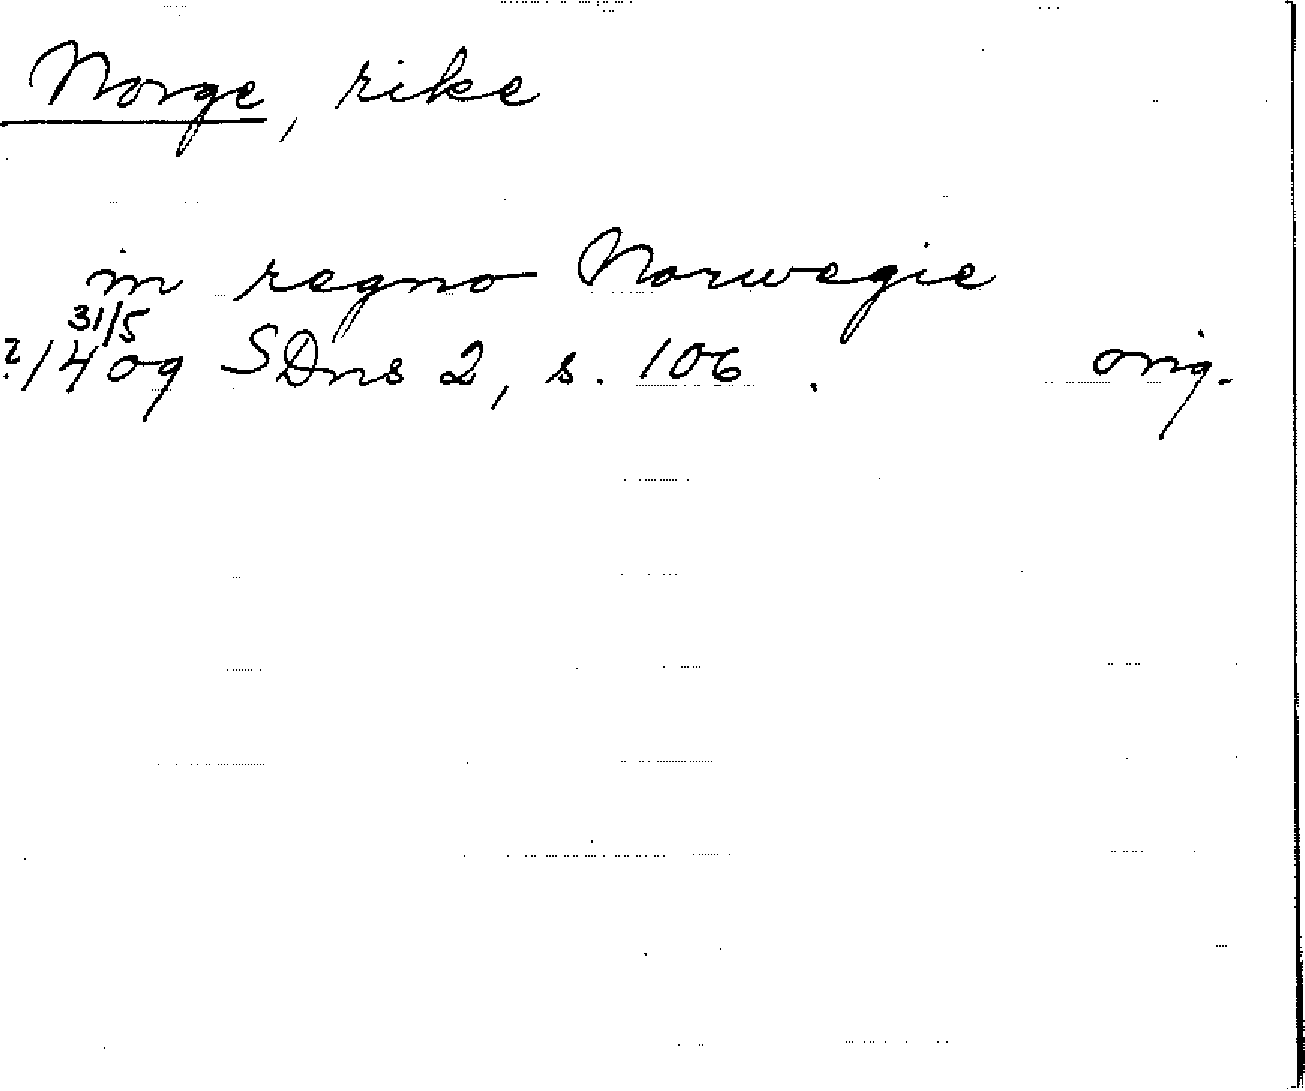 Norge, rike
in regno Norwegie
31/5
?/1409 SDns 2, s. 106. orig.